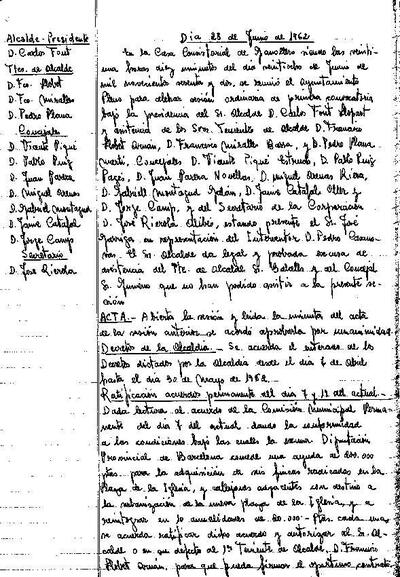 Alcalde-Presidente
D. Carlos Font
Ttes. de Alcalde
D. Fco. Llobet
D. Fco. Miralles
D. Pedro Plana
Concejales
D. Vicente Piqué
D. Pablo Puig
D. Juan Parera
D. Miguel Arenas
D. Gabriel Montagud
D. Jaime Catafal
D. Jorge Camp
Secretario
D. José Rierola
Dia 28 de Junio de 1962
En la Casa Consistorial de Granollers siendo las veinti-
una horas diez minutos del día veintiocho de Junio de
mil novecientos sesenta y dos, se reunió el Ayuntamiento
Pleno para celebrar sesión ordinaria de primera convocatoria
bajo la presidencia del Sr. Alcalde D. Carlos Font Llopart
y asistencia de los Sres. Tenientes de Alcalde D. Francisco
Llobet Arnán, D. Francisco Miralles Bassa, y D. Pedro Plana
Martí, Concejales D. Vicente Piqué D. Pablo Puig
Pagés, D. Juan Parera Novellas, D. Miguel Arenas Riera,
D. Gabriel Montagud D. Jaime Catafal Oller y
D. Jorge Camp, y del Secretario de la Corporación
D. José Rierola Alibés, estando presente el Sr. José
en representación del Interventor D. Pedro
El Sr. Alcalde da legal y probada excusa de
asistencia del Tte. de Alcalde Sr. Botella y del Concejal
Sr. que no han podido asistir a la presente se-
sión
ACTA.- Abierta la sesión y leída la minuta del acta
de la sesión anterior se acordó aprobarla por unanimidad.
Decretos de la Alcaldía.- Se acuerda el enterado de los
Decretos dictados por la Alcaldía desde el día 7 de Abril
hasta el día 30 de Mayo de 1962.
Ratificación acuerdo permanente del día 7 y 12 del actual.-
Dada lectura al acuerdo de la Comisión Municipal Perma-
nente del día 7 del actual dando la conformidad
a las condiciones bajo las cuales la Excma. Diputación
Provincial de Barcelona concede una ayuda de
ptas. para la adquisición de seis fincas radicadas en la
Plaza de la Iglesia, y callejones adyacentes con destino a
la urbanización de la nueva plaza de la Iglesia, y a
reintegrar en 10 anualidades de 20.000 Ptas. cada una
se acuerda ratificar dicho acuerdo y autorizar al Sr. Al-
calde o en su defecto al 1er Teniente de Alcalde, D. Francisco
Llobet Arnán, para que pueda firmar el oportuno contrato